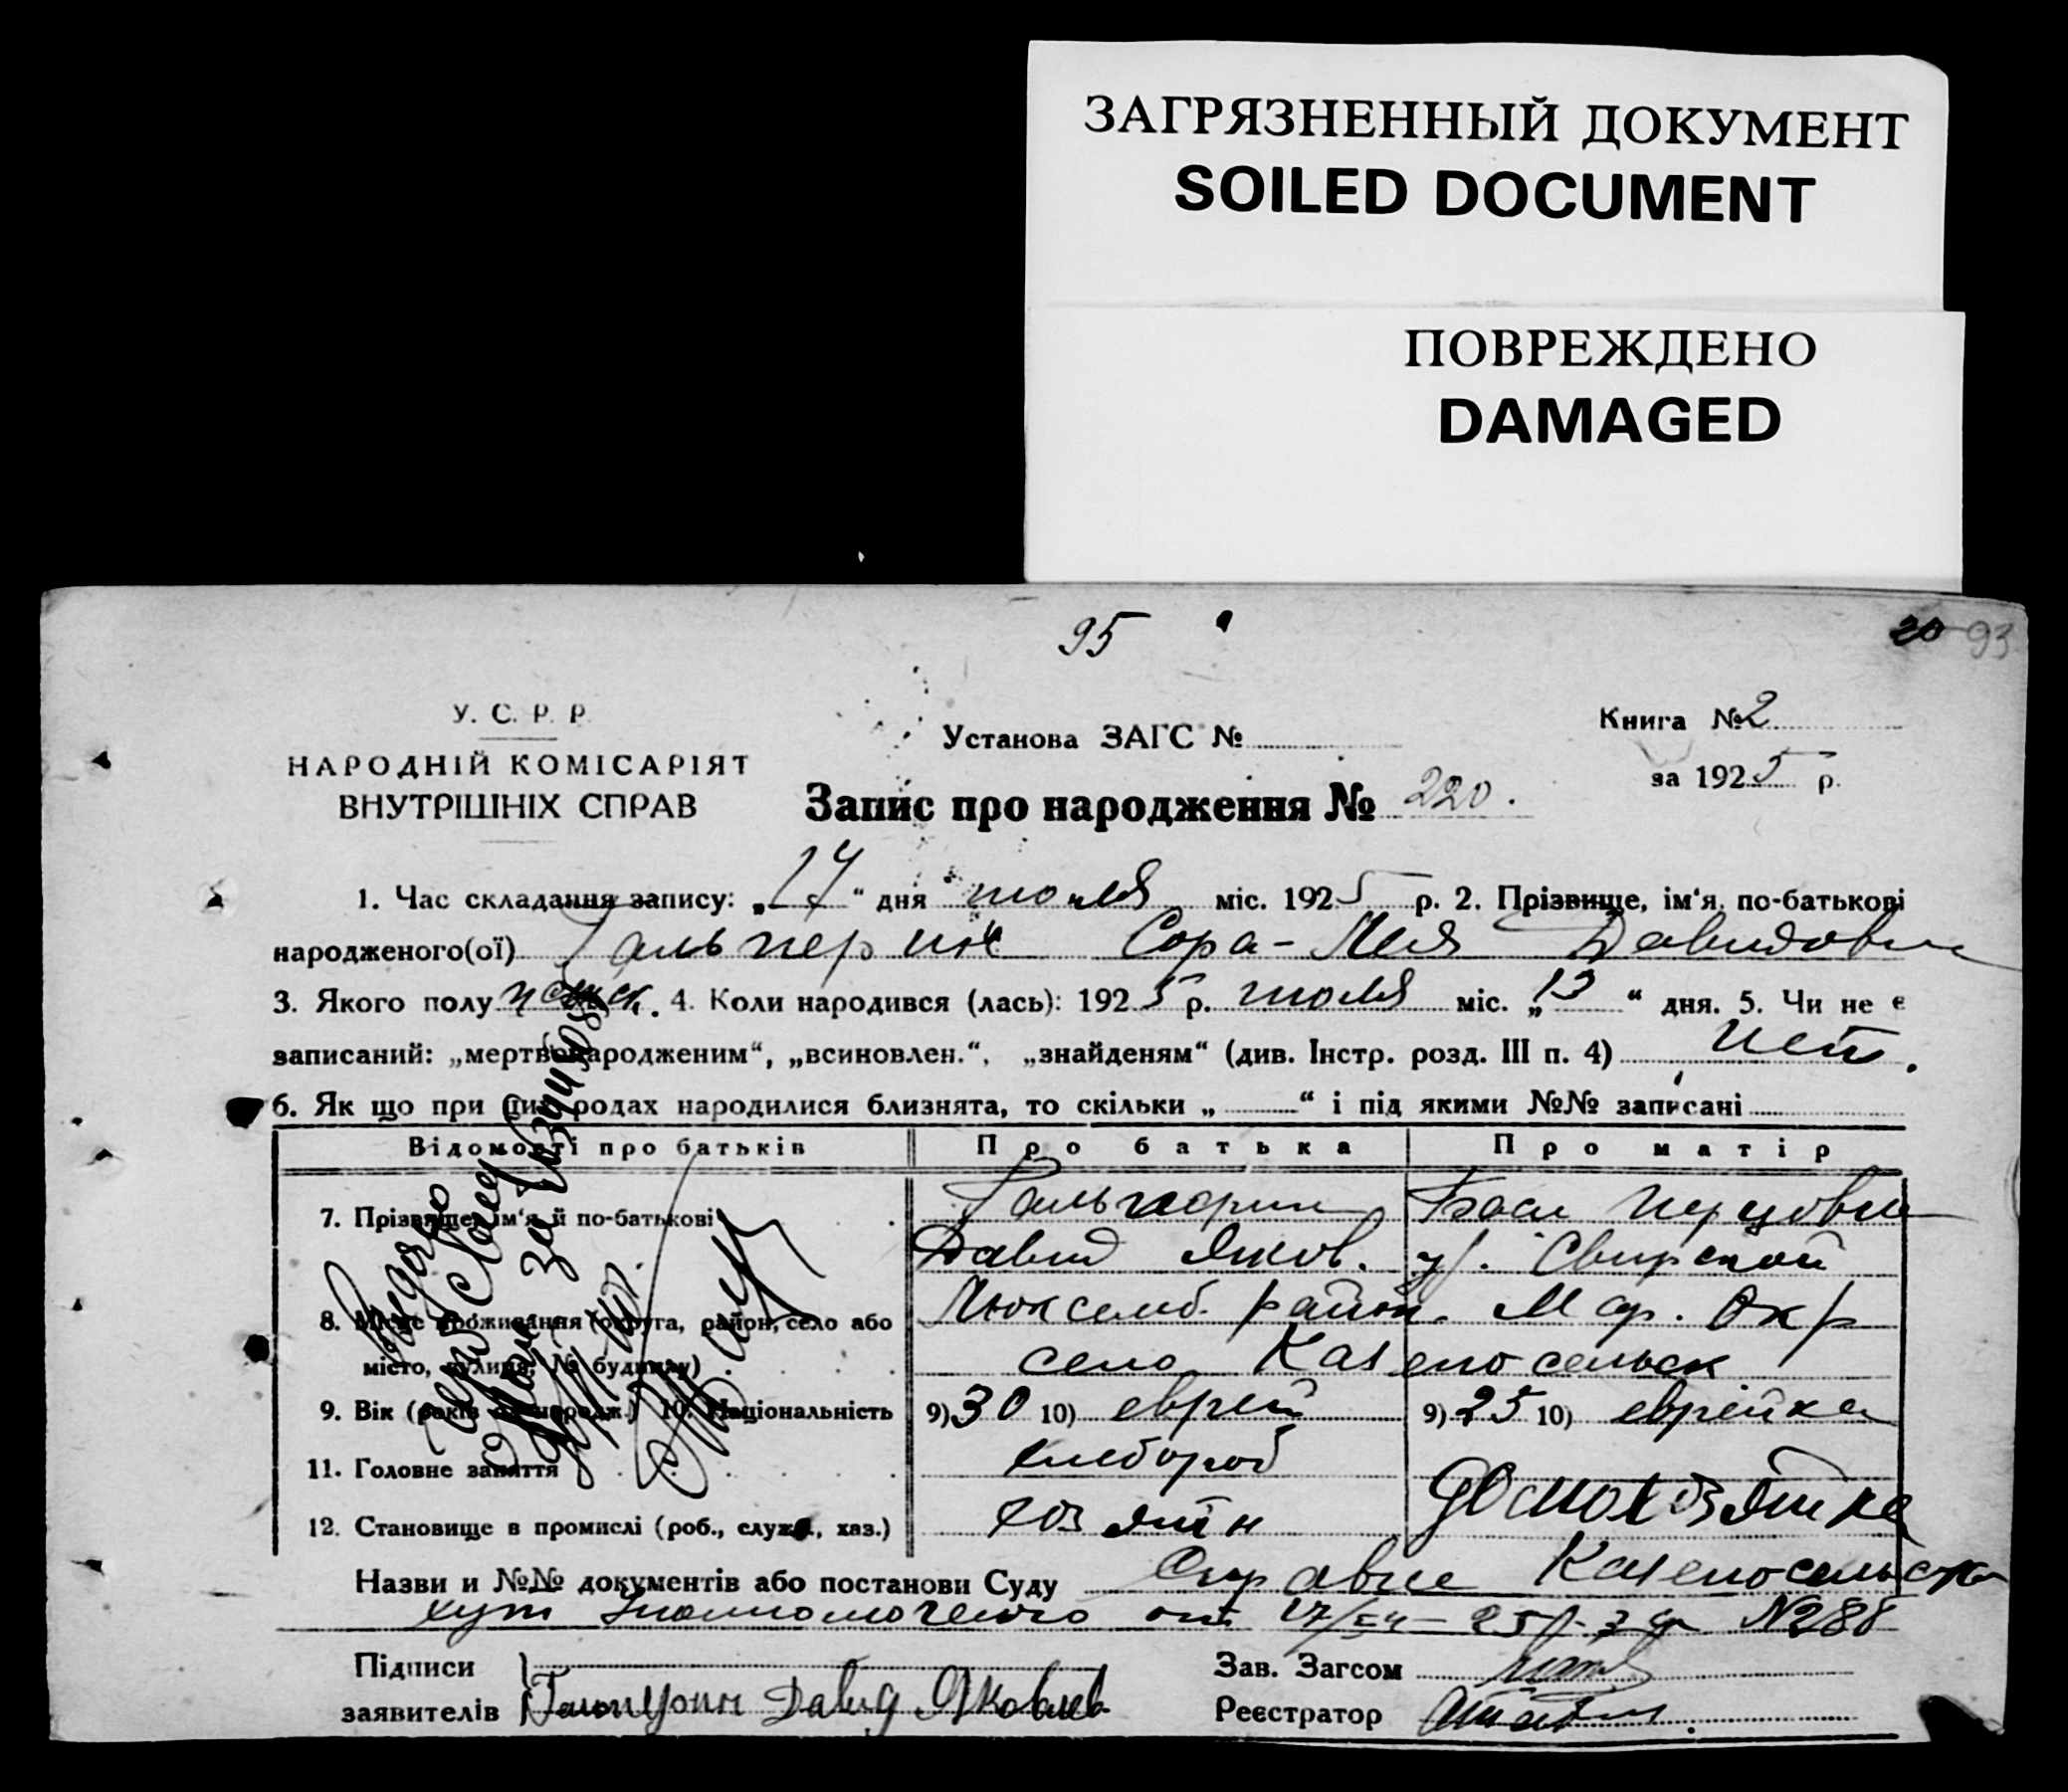 ЗАГРЯЗНЕННЫЙ ДОКУМЕНТ
SOILED DOCUMENT
ПОВРЕЖДЕНО
DAMAGED
95
20 93
У. С. Р. Р.
НАРОДНІЙ КОМІСАРІЯТ
ВНУТРІШНІХ СПРАВ
Установа ЗАГС №
Книга № 2
за 1925 р.
Запис про народження № 220.
1. Час складання запису: „17“ дня июля міс. 1925 р. 2. Прізвище, ім'я, по-батькові
народженого(ої) Гальперин Сора-Лея Давидовн
3. Якого полу женск. 4. Коли народився (лась): 1925 р. июля міс. „13“ дня. 5. Чи не є
записаний: „мертвонародженим“, „всиновлен.“, „знайденям“ (див. Інстр. розд. III п. 4) Нет.
6. Як що при цих родах народилися близнята, то скільки „ “ і під якими №№ записані
Відомості про батьків Про батька Про матір
7. Прізвище, ім'я й по-батькові Гальперин
Давид Яков. Бася Перцовн
ур. Свирской
8. Місце проживання (округа, район, село або Люксемб. район. Мар. Окр
місто, вулиця, № будинку) село Каленосельск
9. Вік (років від народж.) 10. Національність 9) 30 10) еврей 9) 25 10) еврейка
11. Головне заняття хлебороб
12. Становище в промислі (роб., служб., хаз.) хозяин домохозяйка
Назви и №№ документів або постанови Суду Справке
хут от 17/ №288
Підписи
заявителів Давид Яковлев
Зав. Загсом
Реєстратор